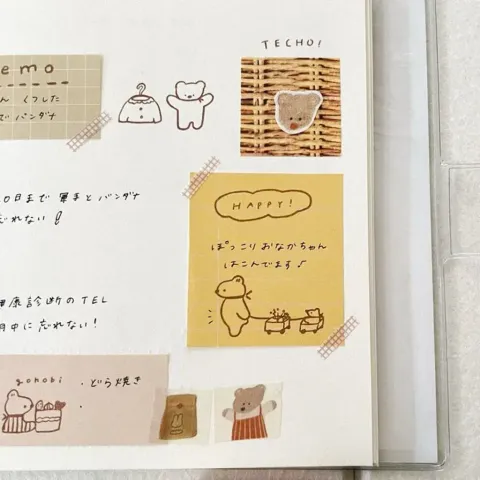 TECHO!
emo
ん くつした
でバンダナ
0日まで 軍手とバンダナ
忘れない!
HAPPY!
ぽっこりおなかちゃん
はこんでます♪
康診断のTEL
中に忘れない!
gohobi
・どら焼き
・